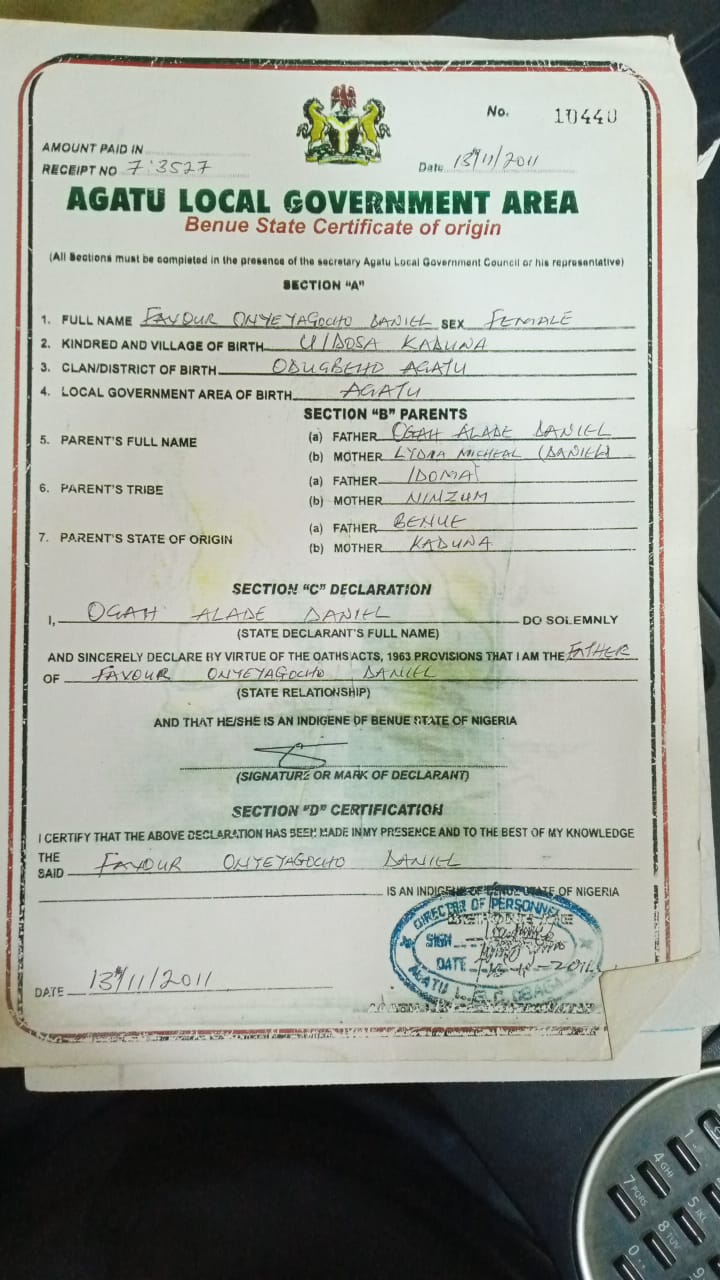 No. 10440
AMOUNT PAID IN
RECEIPT NO 7:3527
Date 13th/11/2011
AGATU LOCAL GOVERNMENT AREA
Benue State Certificate of origin
(All Sections must be completed in the presence of the secretary Agatu Local Government Council or his representative)
SECTION "A"
1. FULL NAME FAVOUR ONYEYAGOCHO DANIEL SEX FEMALE
2. KINDRED AND VILLAGE OF BIRTH U/DOSA KADUNA
3. CLAN/DISTRICT OF BIRTH ODUGBEHO AGATU
4. LOCAL GOVERNMENT AREA OF BIRTH AGATU
SECTION "B" PARENTS
5. PARENT'S FULL NAME (a) FATHER OGAH ALADE DANIEL
(b) MOTHER LYDIA MICHEAL (DANIEL)
6. PARENT'S TRIBE (a) FATHER IDOMA
(b) MOTHER NINZUM
7. PARENT'S STATE OF ORIGIN (a) FATHER BENUE
(b) MOTHER KADUNA
SECTION "C" DECLARATION
I, OGAH ALADE DANIEL DO SOLEMNLY
(STATE DECLARANT'S FULL NAME)
AND SINCERELY DECLARE BY VIRTUE OF THE OATHS ACTS, 1963 PROVISIONS THAT I AM THE FATHER
OF FAVOUR ONYEYAGOCHO DANIEL
(STATE RELATIONSHIP)
AND THAT HE/SHE IS AN INDIGENE OF BENUE STATE OF NIGERIA
(SIGNATURE OR MARK OF DECLARANT)
SECTION "D" CERTIFICATION
I CERTIFY THAT THE ABOVE DECLARATION HAS BEEN MADE IN MY PRESENCE AND TO THE BEST OF MY KNOWLEDGE
THE SAID FAVOUR ONYEYAGOCHO DANIEL
IS AN INDIGENE OF BENUE STATE OF NIGERIA
DIRECTOR OF PERSONNEL
SIGN
DATE
AGATU L.G.
DATE 13th/11/2011
1
4 GHI
5 JKL
7 PQRS
8 TUV
0
9